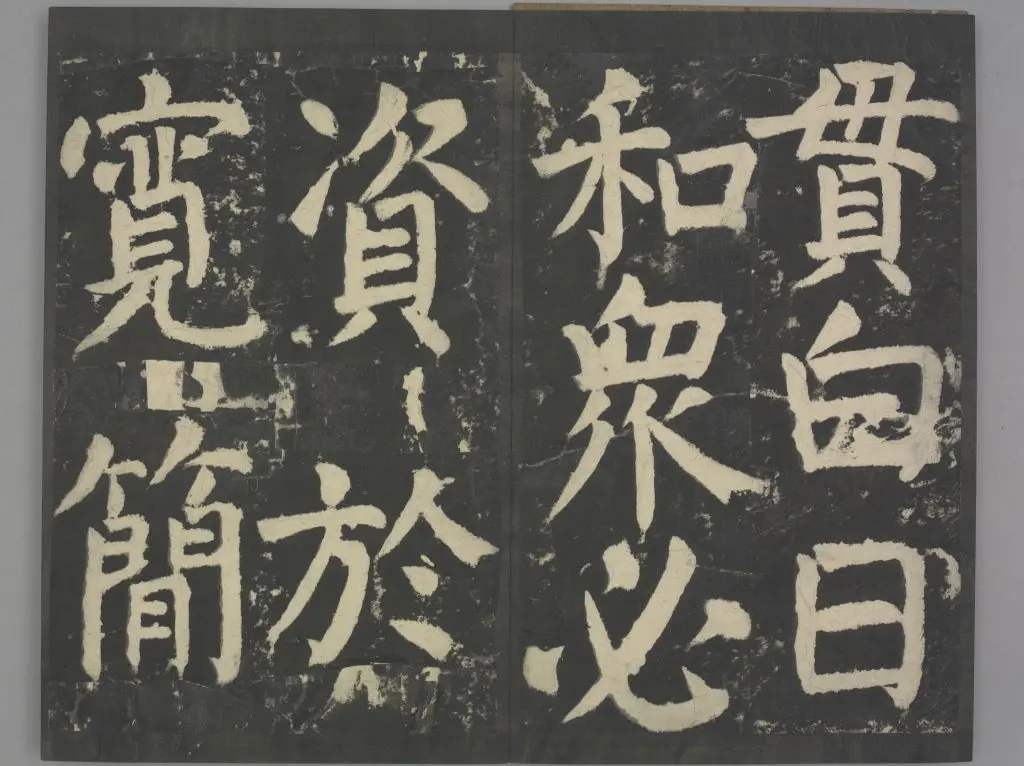 貫白日
和衆必
資於
寬簡